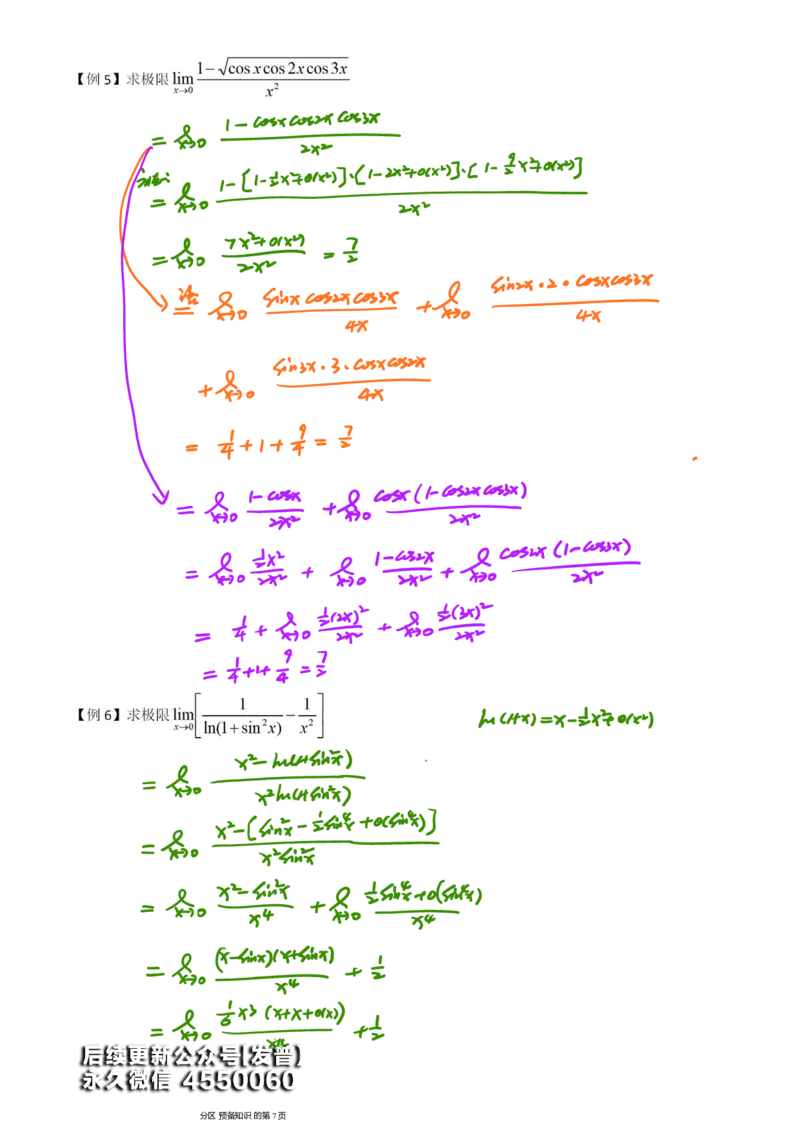 【例5】求极限 lim_{x→0} (1−√(cos x cos 2x cos 3x))/x²
= lim_{x→0} (1−cosx cos2x cos3x)/(2x²)
= lim_{x→0} (1−[1−½x²+o(x²)]·[1−2x²+o(x²)]·[1−9/2x²+o(x²)])/(2x²)
= lim_{x→0} (7x²+o(x²))/(2x²) = 7/2
= lim_{x→0} (sinx cos2x cos3x)/(4x) + lim_{x→0} (sin2x·2·cosx cos3x)/(4x)
+ lim_{x→0} (sin3x·3·cosx cos2x)/(4x)
= 1/4+1+9/4 = 7/2
= lim_{x→0} (1−cosx)/(2x²) + lim_{x→0} (cosx(1−cos2x cos3x))/(2x²)
= lim_{x→0} (½x²)/(2x²) + lim_{x→0} (1−cos2x)/(2x²) + lim_{x→0} (cos2x(1−cos3x))/(2x²)
= 1/4 + lim_{x→0} (½(2x)²)/(2x²) + lim_{x→0} (½(3x)²)/(2x²)
= 1/4+1+9/4 = 7/2
【例6】求极限 lim_{x→0} [1/ln(1+sin²x) − 1/x²]
ln(1+x)=x−½x²+o(x²)
= lim_{x→0} (x²−ln(1+sin²x))/(x²ln(1+sin²x))
= lim_{x→0} (x²−[sin²x−½sin⁴x+o(sin⁴x)])/(x²sin²x)
= lim_{x→0} (x²−sin²x)/x⁴ + lim_{x→0} (½sin⁴x+o(sin⁴x))/x⁴
= lim_{x→0} ((x−sinx)(x+sinx))/x⁴ + 1/2
= lim_{x→0} (1/6x³(x+x+o(x)))/x⁴ + 1/2
后续更新公众号[发晋]
永久微信 4550060
分区 预备知识 的第 7 页